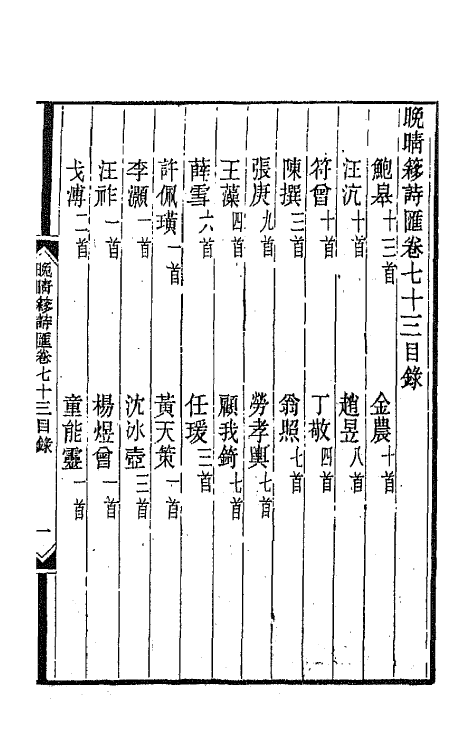 晚晴簃詩匯卷七十三目錄
鮑皋十三首 金農十首
汪沆十首 趙昱八首
符曾十首 丁敬四首
陳撰三首 翁照七首
張庚九首 勞孝輿七首
王藻四首 顧我錡七首
薛雪六首 任瑗三首
許佩璜一首 黃天策一首
李灝一首 沈冰壺三首
汪祚一首 楊煜曾一首
戈濤二首 童能靈一首
晚晴簃詩匯卷七十三目錄
一